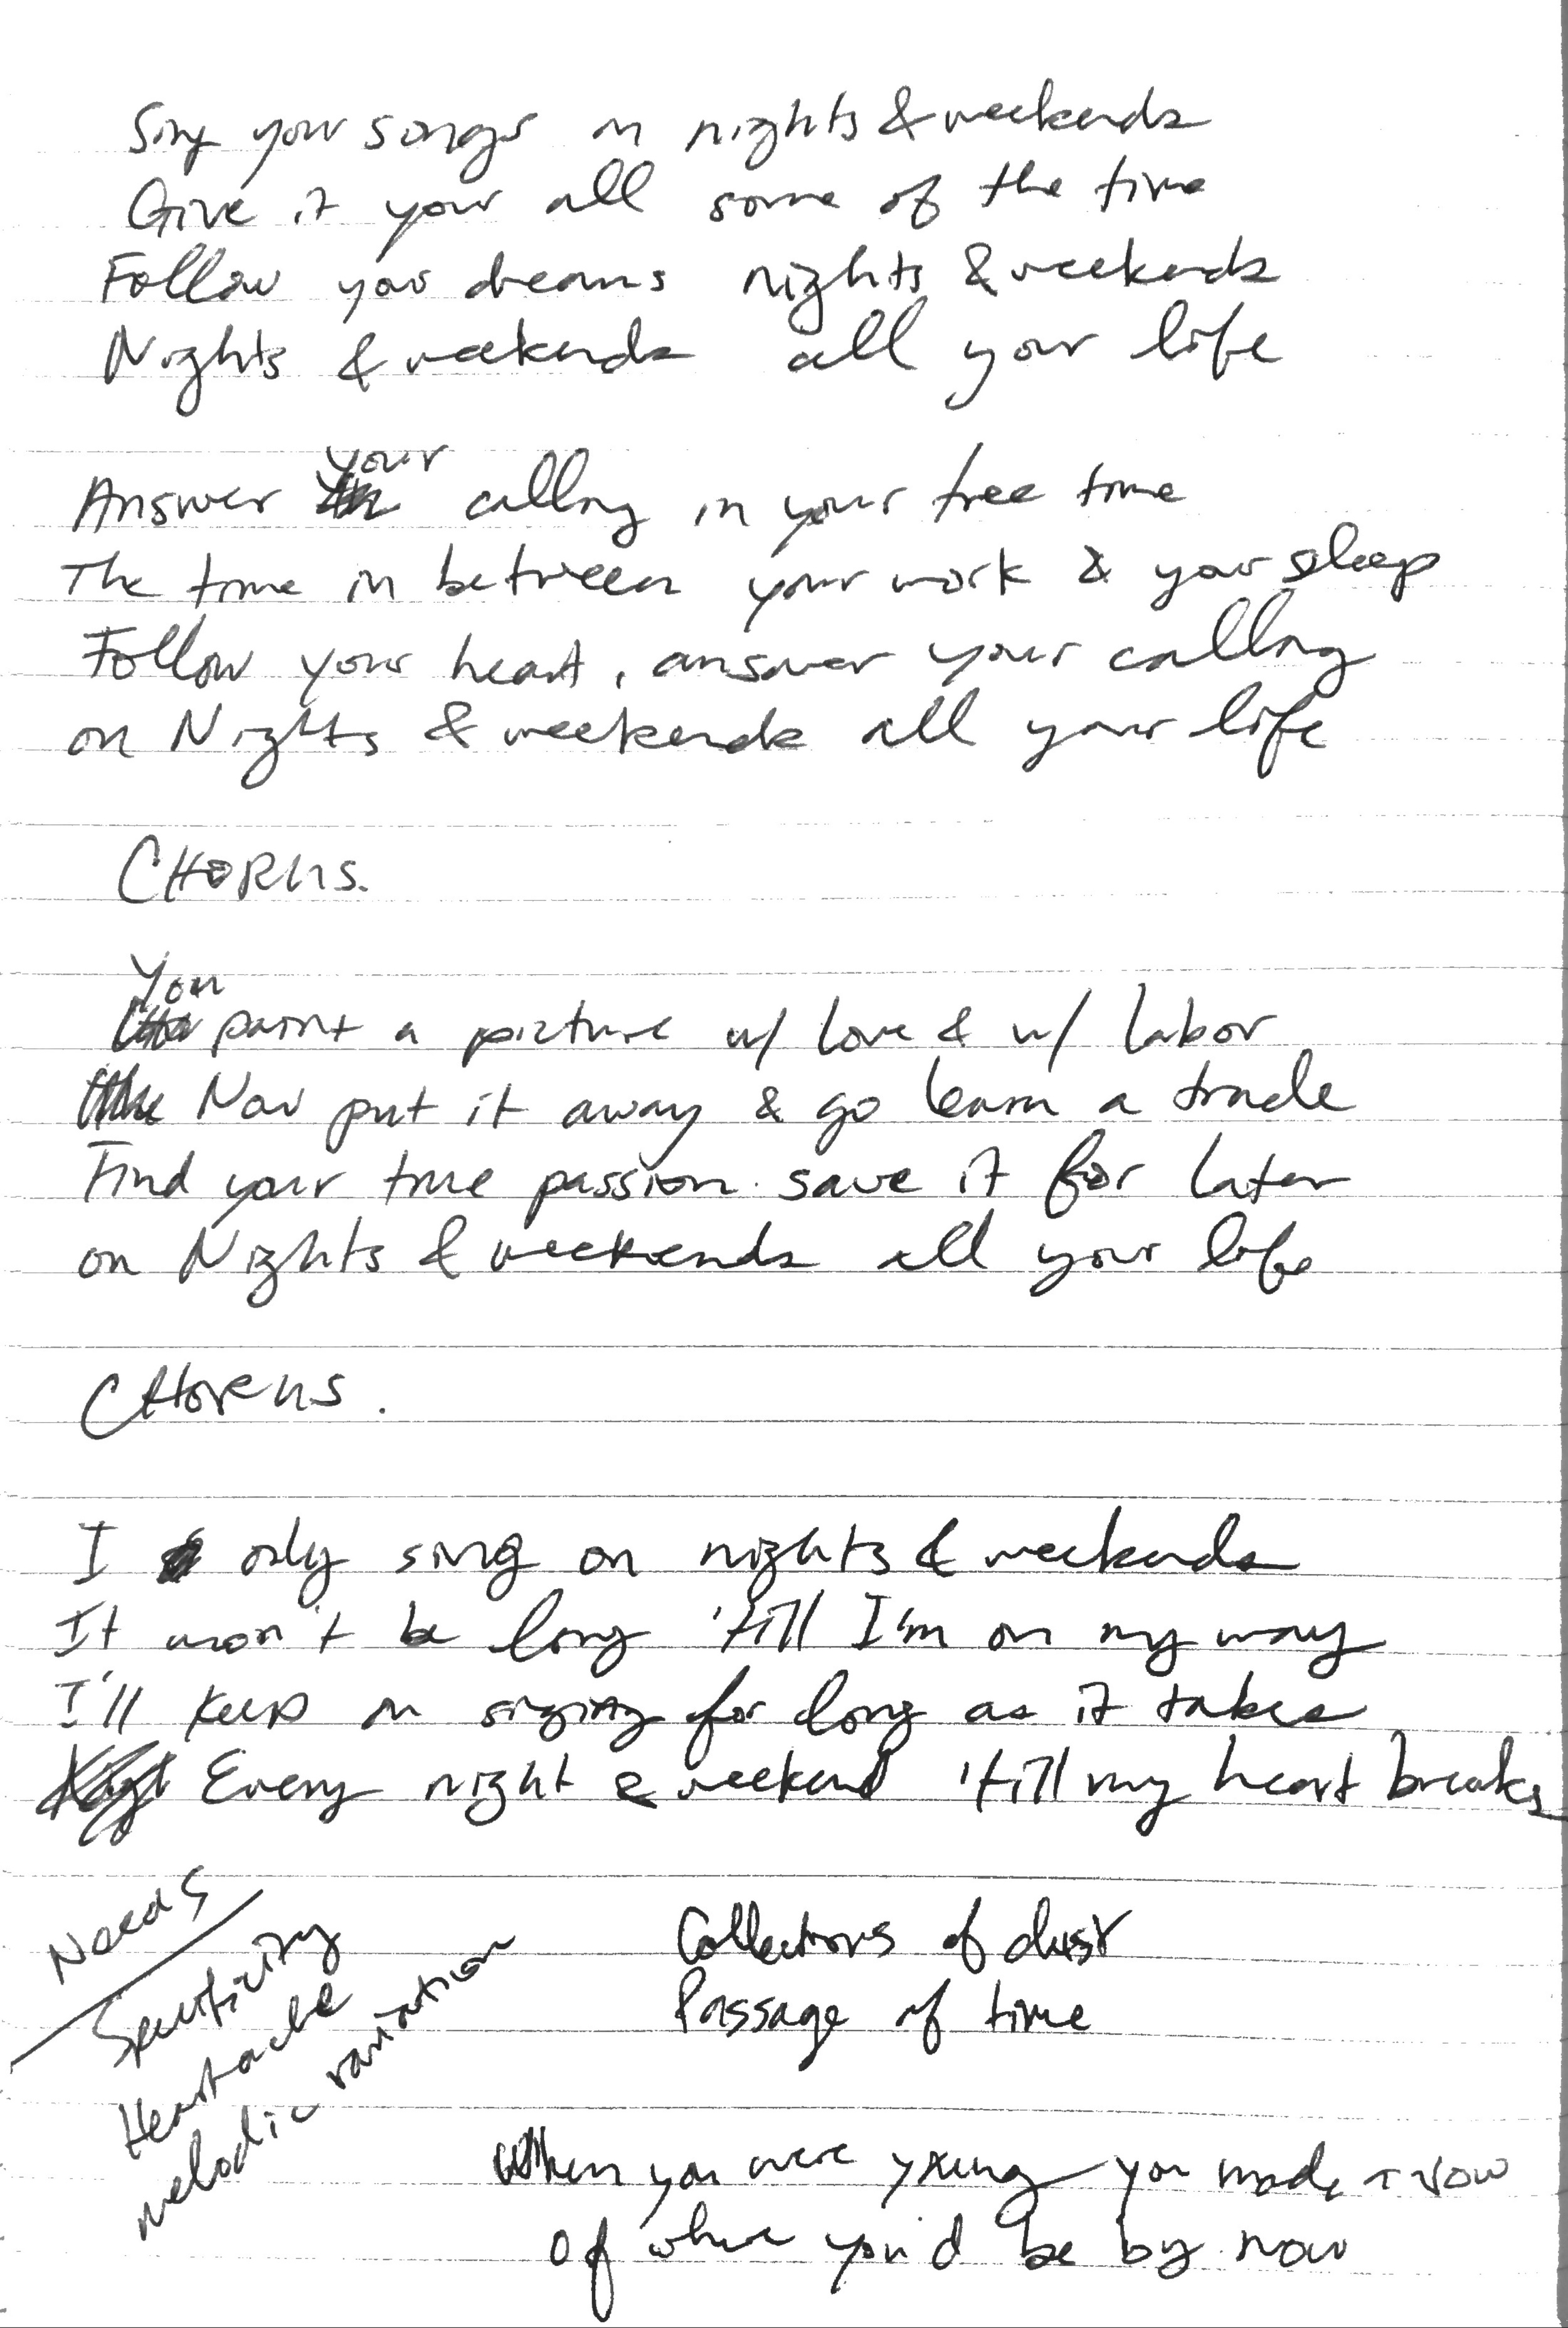 Sing your songs on nights & weekends
Give it your all some of the time
Follow your dreams nights & weekends
Nights & weekends all your life
your
Answer calling in your free time
The time in between your work & your sleep
Follow your heart, answer your calling
on Nights & weekends all your life
CHORUS.
You
paint a picture w/ love & w/ labor
Now put it away & go learn a trade
Find your true passion. save it for later
on Nights & weekends all your life
CHORUS.
I only sing on nights & weekends
It won't be long 'till I'm on my way
I'll keep on singing for long as it takes
Every night & weekend 'till my heart breaks
Needs
Specificity
Heartache
melodic variation
Collections of dust
Passage of time
When you were young you made a vow
Of where you'd be by now